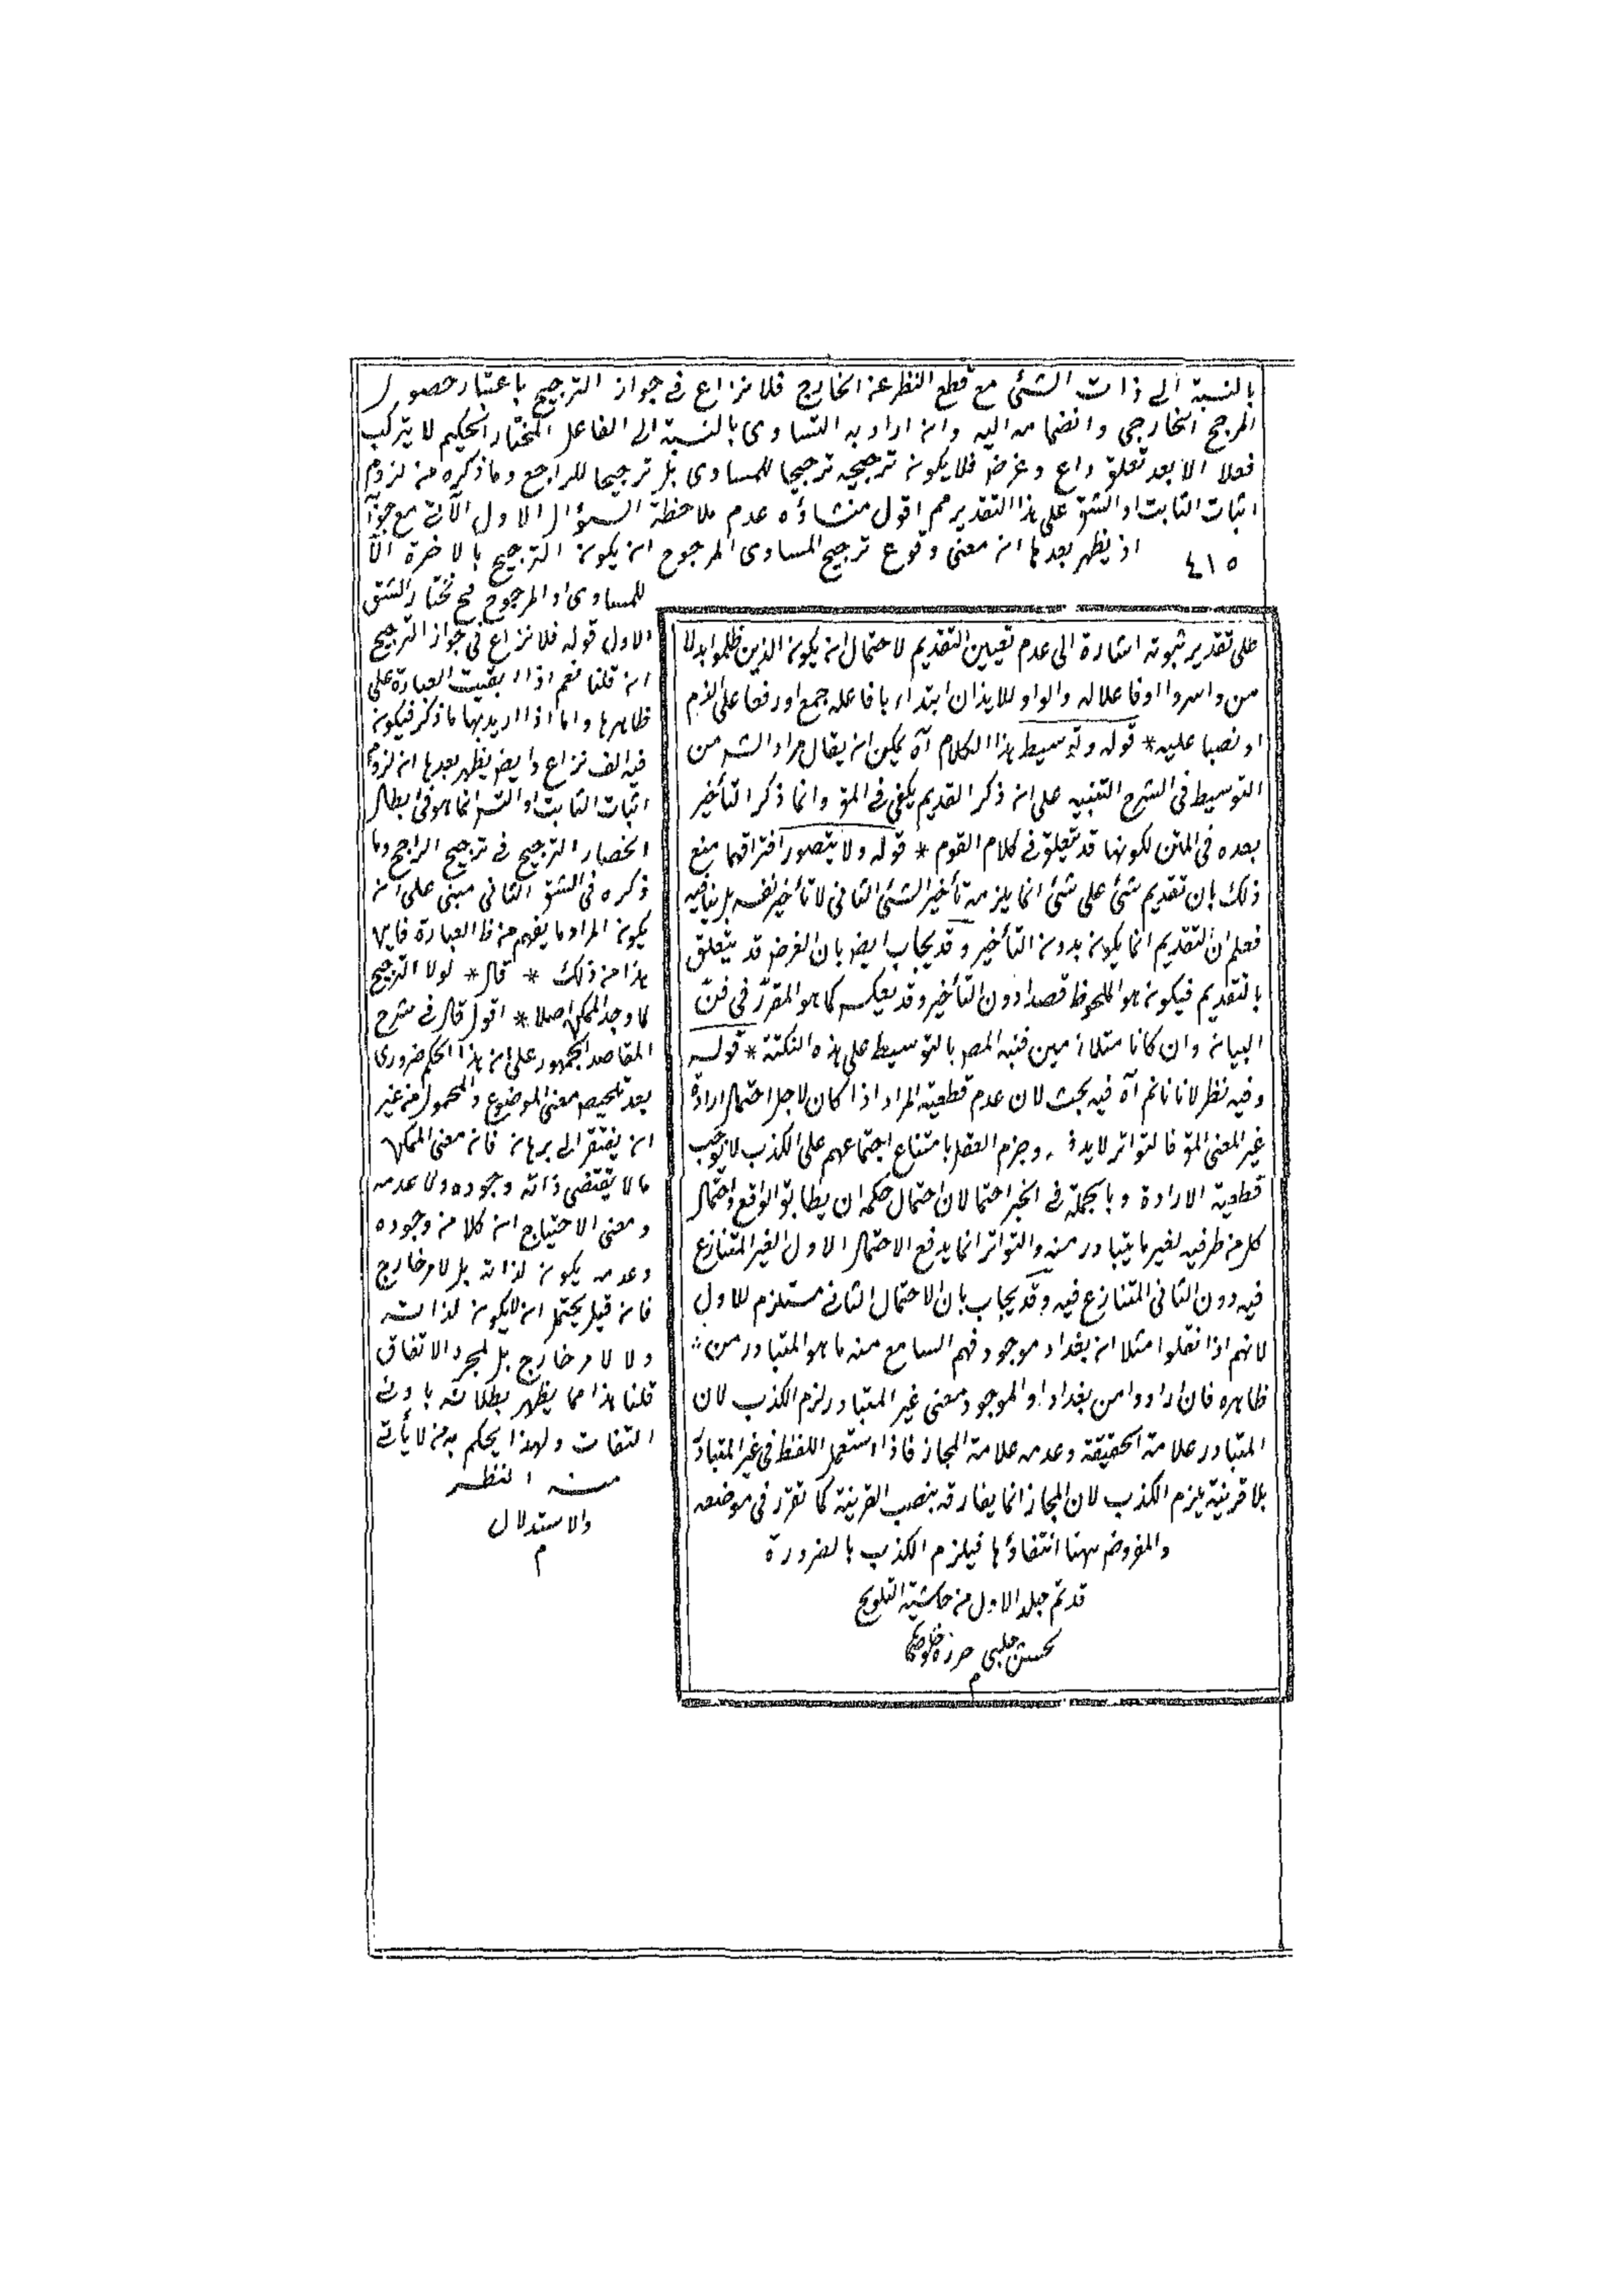 بالنسبة الى ذات الشئ مع قطع النظر عن الخارج فلا نزاع فى جواز الترجيح باعتبار حصول
المرجح الخارجى وانضمامه اليه وان اراد به التساوى بالنسبة الى الفاعل المختار الحكيم لا يترك
فعلا الا بعد تعلق داع وغرض فلا يكون ترجيحه ترجيحا للمساوى بل ترجيحا للراجح وما ذكره من لزوم
اثبات الثابت او الشق على هذا التقدير مم اقول منشاؤه عدم ملاحظة السؤال الاول الآتى مع جوا
٤١٥ اذ يظهر بعدهما ان معنى وقوع ترجيح المساوى المرجوح ان يكون الترجيح بالاخرة الا
للمساوى او المرجوح فح نختار الشق
الاول قوله فلا نزاع فى جواز الترجيح
ان قلنا نعم اذا ابقيت العبارة على
ظاهرها واما اذا اريد بها ما ذكر فيكون
فيه الف نزاع وايض يظهر بعدها ان لزوم
اثبات الثابت او التس انما هو فى ابطال
انحصار الترجيح فى ترجيح الراجح وما
ذكره فى الشق الثانى مبنى على ان
يكون المراد ما يفهم من ظ العبارة فاين
هذا من ذلك * قال * لولا الترجيح
لما وجد الممكن اصلا * اقول قال فى شرح
المقاصد الجمهور على ان هذا الحكم ضرورى
بعد تلخيص معنى الموضوع والمحمول من غير
ان يفتقر الى برهان فان معنى الممكن
ما لا يقتضى ذاته وجوده ولا عدمه
ومعنى الاحتياج ان كلا من وجوده
وعدمه يكون لذاته بل لامر خارج
فان قيل يحتمل ان لا يكون لذاته
ولا لامر خارج بل لمجرد الاتفاق
قلنا هذا مما يظهر بطلانه بادنى
التفات ولهذا يحكم به من لا يأتى
منه النظر
والاستدلال
م
على تقدير ثبوته اشارة الى عدم تعيين التقديم لاحتمال ان يكون الذين ظلموا بدلا
من واو اسروا او فاعلا له والواو للايذان ابتداء بان فاعله جمع او رفعا على الذم
او نصبا عليه * قوله وتوسيط هذا الكلام آه يمكن ان يقال مراد الشر من
التوسيط فى الشرح التنبيه على ان ذكر القديم يكفى فى المق وانما ذكر التأخير
بعده فى المتن لكونها قد تعلق فى كلام القوم * قوله ولا يتصور افتراقهما منع
ذلك بان تقديم شئ على شئ انما يلزمه تأخير الشئ الثانى لا تأخير نفسه بل ينافيه
فعلم ان التقديم انما يكون بدون التأخير وقد يجاب ايض بان الغرض قد يتعلق
بالتقديم فيكون هو الملحوظ قصدا دون التأخير وقد يعكس كما هو المقرر فى فن
البيان وان كانا متلازمين فنبه المص بالتوسيط على هذه النكتة * قوله
وفيه نظر لانا نانم آه فيه بحث لان عدم قطعية المراد اذا كان لاجل احتمال ارادة
غير المعنى المق فالتواتر لا يدفعه وجزم العقل بامتناع اجتماعهم على الكذب لا يوجب
قطعية الارادة وبالجملة فى الخبر احتمالان احتمال حكمه ان يطابق الواقع واحتمال
كل من طرفيه لغير ما يتبادر منه والتواتر انما يدفع الاحتمال الاول الغير المتنازع
فيه دون الثانى المتنازع فيه وقد يجاب بان الاحتمال الثانى مستلزم للاول
لانهم اذا نقلوا مثلا ان بغداد موجود فهم السامع منه ما هو المتبادر من
ظاهره فان ارادوا من بغداد او الموجود معنى غير المتبادر لزم الكذب لان
المتبادر علامة الحقيقة وعدمه علامة المجاز فاذا استعمل اللفظ فى غير المتبادر
بلا قرينة يلزم الكذب لان المجاز انما يفارقه بنصب القرينة كما تقرر فى موضعه
والمفروض ههنا انتفاؤها فيلزم الكذب بالضرورة
قد تم جلد الاول من حاشية التلويح
لحسن چلبى
م